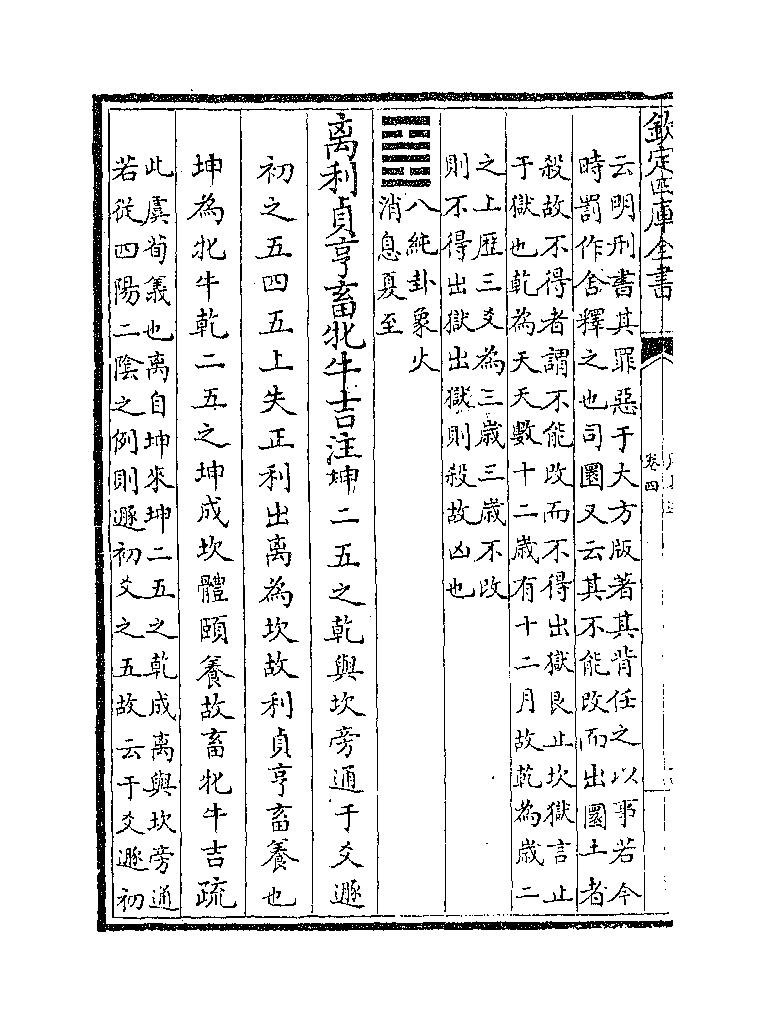 欽定四庫全書
卷四
云明刑書其罪惡于大方版著其背任之以事若今
時罰作舍釋之也司圜又云其不能改而出圜土者
殺故不得者謂不能改而不得出獄艮止坎獄言止
于獄也乾為天天數十二歲有十二月故乾為歲二
之上歴三爻為三歲三歲不改
則不得出獄出獄則殺故凶也
八純卦象火
消息夏至
离利貞亨畜牝牛吉注坤二五之乾與坎旁通于爻遯
初之五四五上失正利出离為坎故利貞亨畜養也
坤為牝牛乾二五之坤成坎體頤養故畜牝牛吉疏
此虞荀義也离自坤來坤二五之乾成离與坎旁通
若從四陽二陰之例則遯初爻之五故云于爻遯初